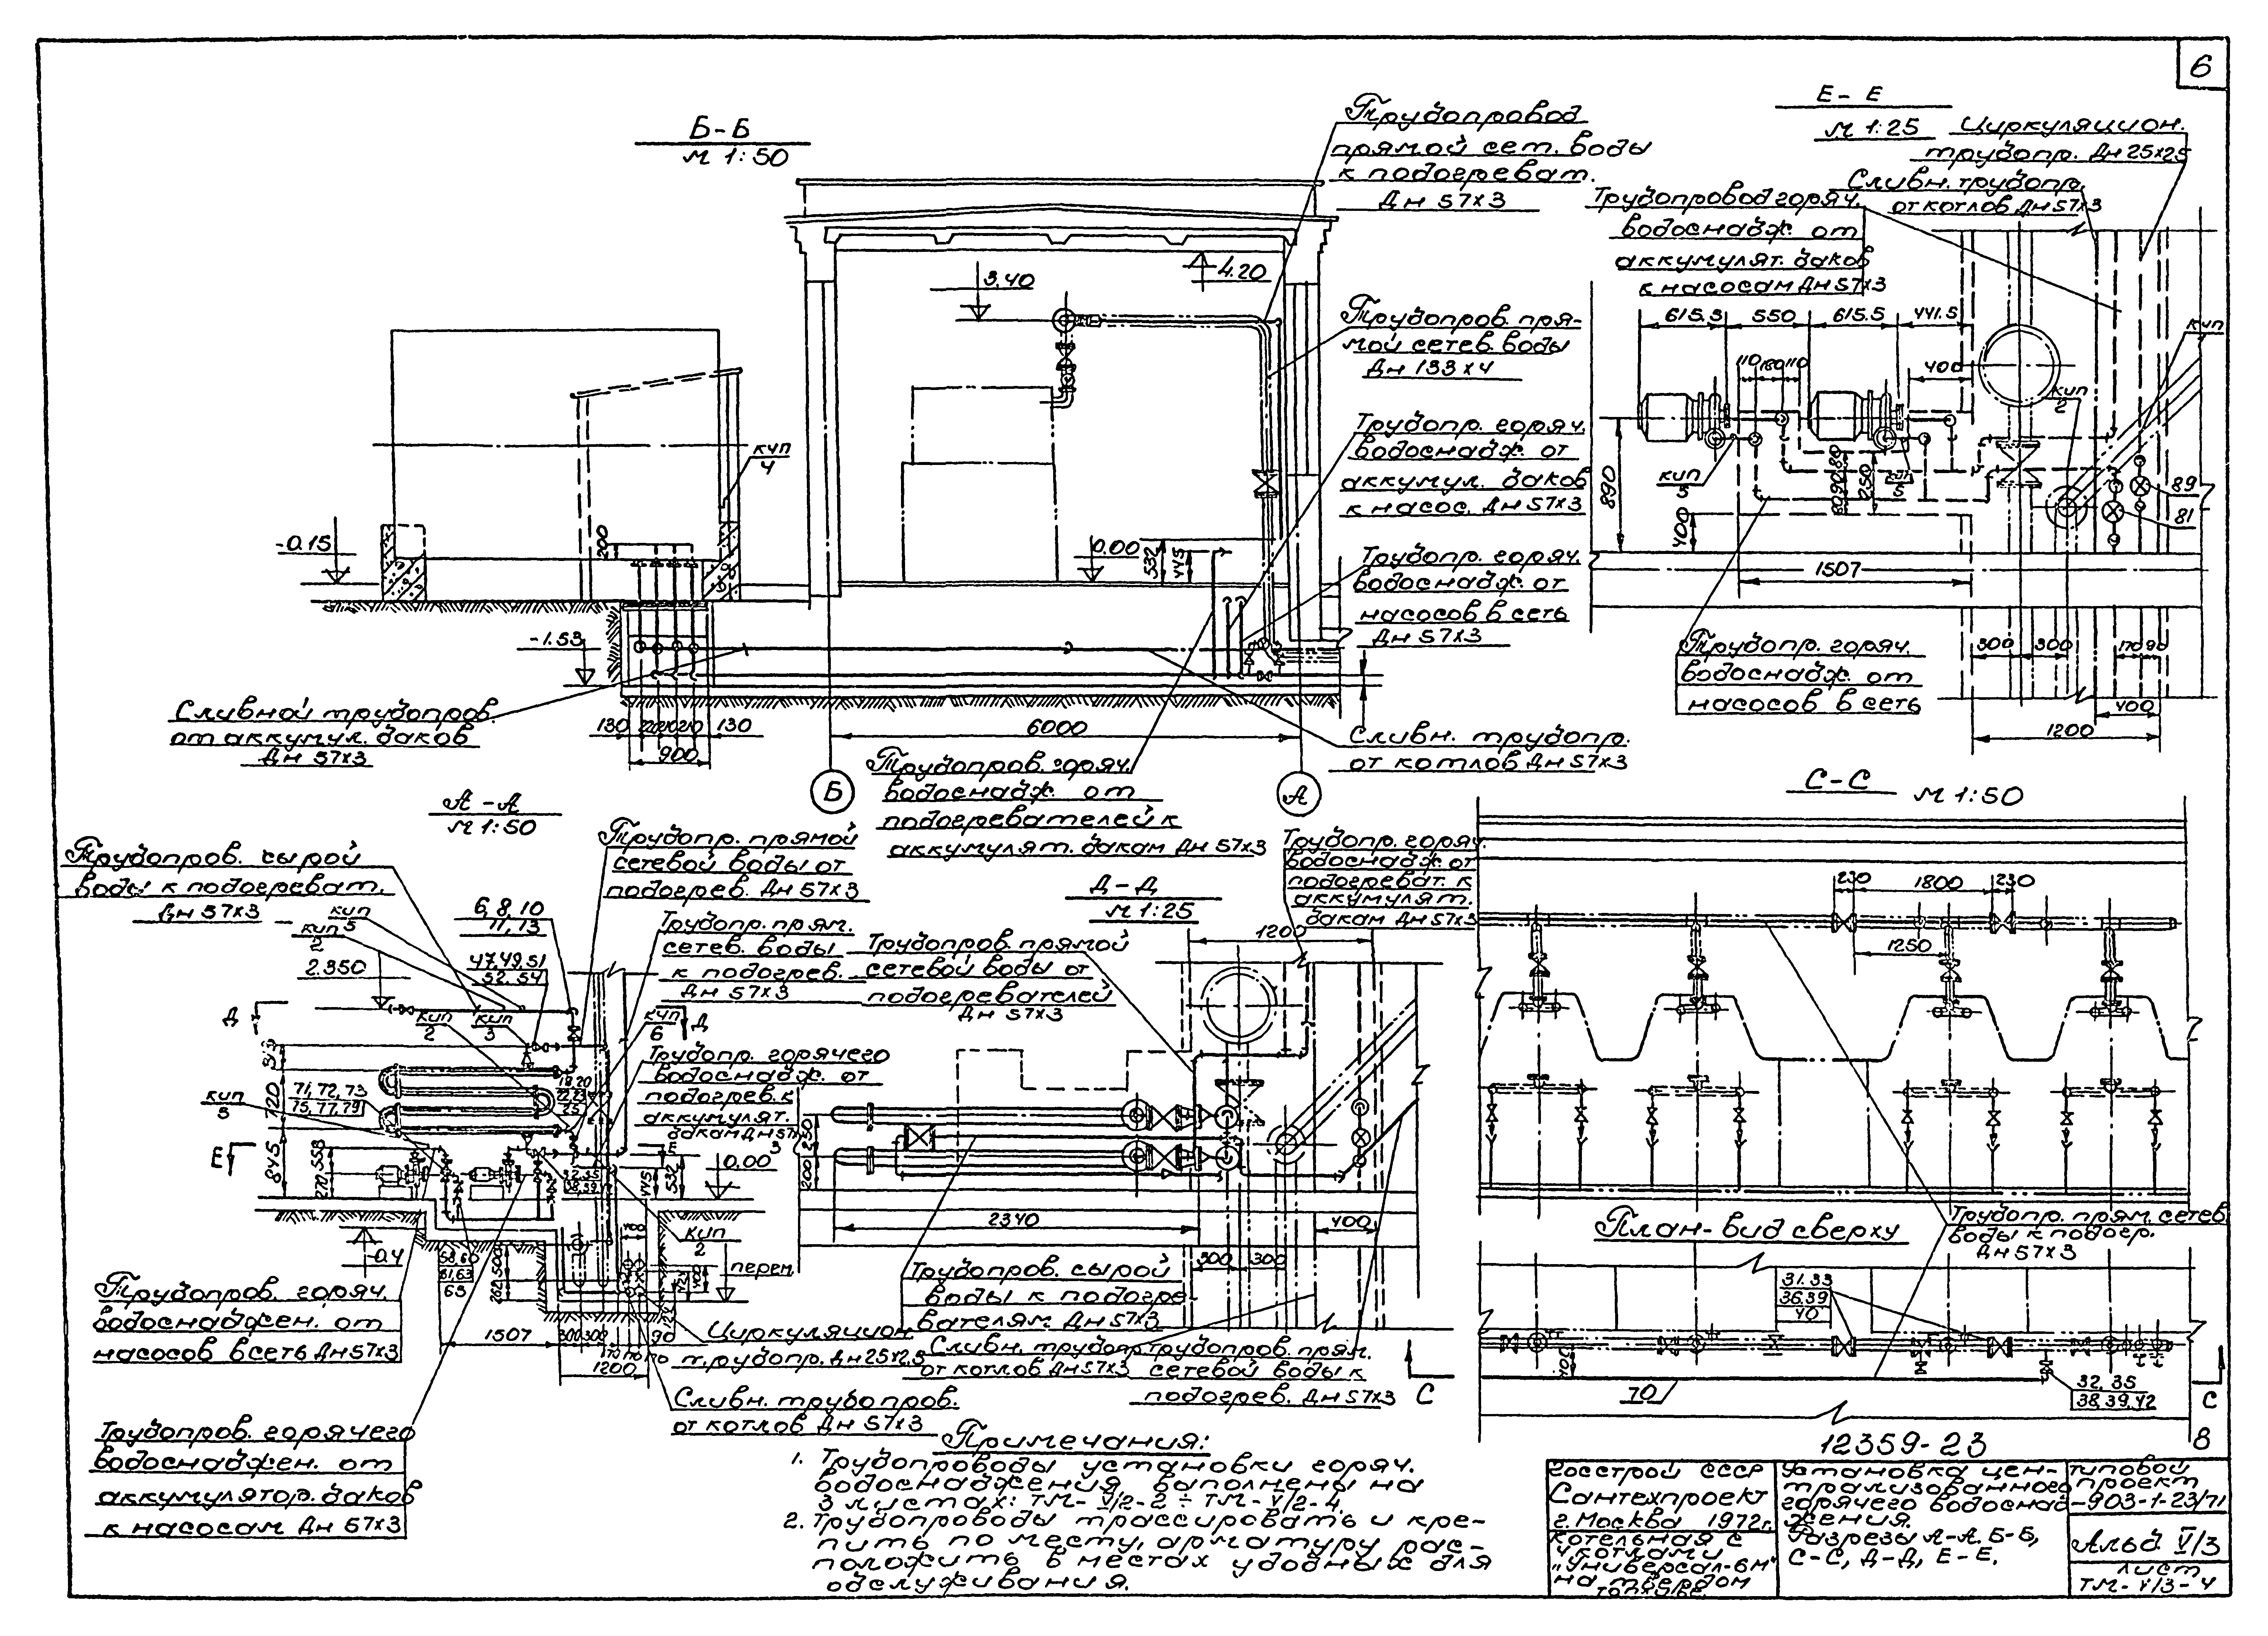 6
Б-Б
М 1:50
Трубопровод
прямой сет. воды
к подогреват.
Дн 57х3
3.40
4.20
Трубопров. пря-
мой сетев. воды
Дн 133х4
Трубопр. горяч.
водоснабж. от
аккумул. баков
к насос. Дн 57х3
Трубопр. горяч.
водоснабж. от
насосов в сеть
Дн 57х3
кип
4
-0.15
200
0.00
532
445
-1.53
Сливной трубопров.
от аккумул. баков
Дн 57х3
130
130
900
6000
Б
А
Сливн. трубопр.
от котлов Дн 57х3
Трубопров. горяч.
водоснабж. от
подогревателей к
аккумулят. бакам Дн 57х3
Е-Е
М 1:25
Циркуляцион.
трубопр. Дн 25х25
Сливн. трубопр.
от котлов Дн 57х3
Трубопровод горяч.
водоснабж от
аккумулят. баков
к насосам Дн 57х3
615.5
550
615.5
441.5
110
180
110
400
кип
кип
2
кип
5
кип
5
890
400
250
89
81
1507
300
300
170
90
400
1200
Трубопр. горяч.
водоснабж. от
насосов в сеть
А-А
М 1:50
Трубопров. сырой
воды к подогреват.
Дн 57х3
Трубопр. прямой
сетевой воды от
подогрев. Дн 57х3
Трубопр. прям.
сетев. воды
к подогрев.
Дн 57х3
кип
5
кип
2
6, 8, 10
11, 13
47, 49, 51
52, 54
2.350
Д
Д
кип
2
кип
3
кип
6
Трубопр. горячего
водоснабж. от
подогрев. к
аккумулят.
бакам Дн 57х3
71, 72, 73
75, 77, 79
кип
5
720
845
558
270
Е
0.00
445
532
-0.4
500
1507
300
300
90
1200
кип
2
перем.
Циркуляцион.
трубопр. Дн 25х2.5
Сливн. трубопров.
от котлов Дн 57х3
Трубопров. горяч.
водоснабжен. от
насосов в сеть Дн 57х3
Трубопров. горячего
водоснабжен. от
аккумулятор. баков
к насосам Дн 57х3
Д-Д
М 1:25
Трубопров. прямой
сетевой воды от
подогревателей
Дн 57х3
Трубопр. горяч.
водоснабж от
подогреват. к
аккумулят.
бакам Дн 57х3
1200
250
200
2340
400
300
300
Трубопров. сырой
воды к подогре-
вателям Дн 57х3
Сливн. трубопр.
от котлов Дн 57х3
трубопров. прям.
сетевой воды к
подогрев. Дн 57х3
С
С-С
М 1:50
230
1800
230
1250
Трубопр. прям. сетев.
воды к подогр.
Дн 57х3
План-вид сверху
31.33
36.39
40
400
70
32, 35
38, 39, 42
С
Примечания:
1. Трубопроводы установки горяч.
водоснабжения выполнены на
3 листах: ТМ-V/2-2 ÷ ТМ-V/2-4.
2. Трубопроводы трассировать и кре-
пить по месту, арматуру рас-
положить в местах удобных для
обслуживания.
12359-23
8
Госстрой СССР
Сантехпроект
г. Москва 1972г.
Котельная с
4 котлами
"Универсал-6м"
на твердом
топливе
Установка цен-
трализованного
горячего водоснаб-
жения.
Разрезы А-А, Б-Б,
С-С, Д-Д, Е-Е.
Типовой
проект
-903-1-23/71
Альб. V/3
Лист
ТМ-V/3-4